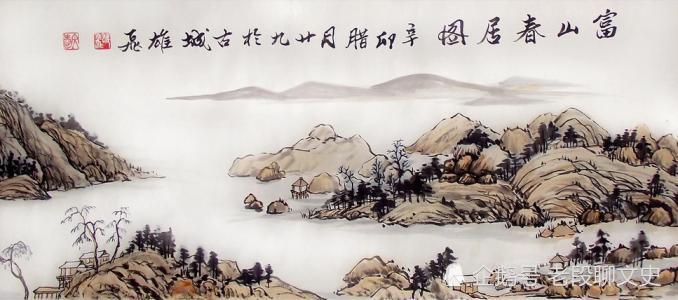 富山春居图 辛卯腊月廿九於古城雄飛
企鹅号 老段聊文史